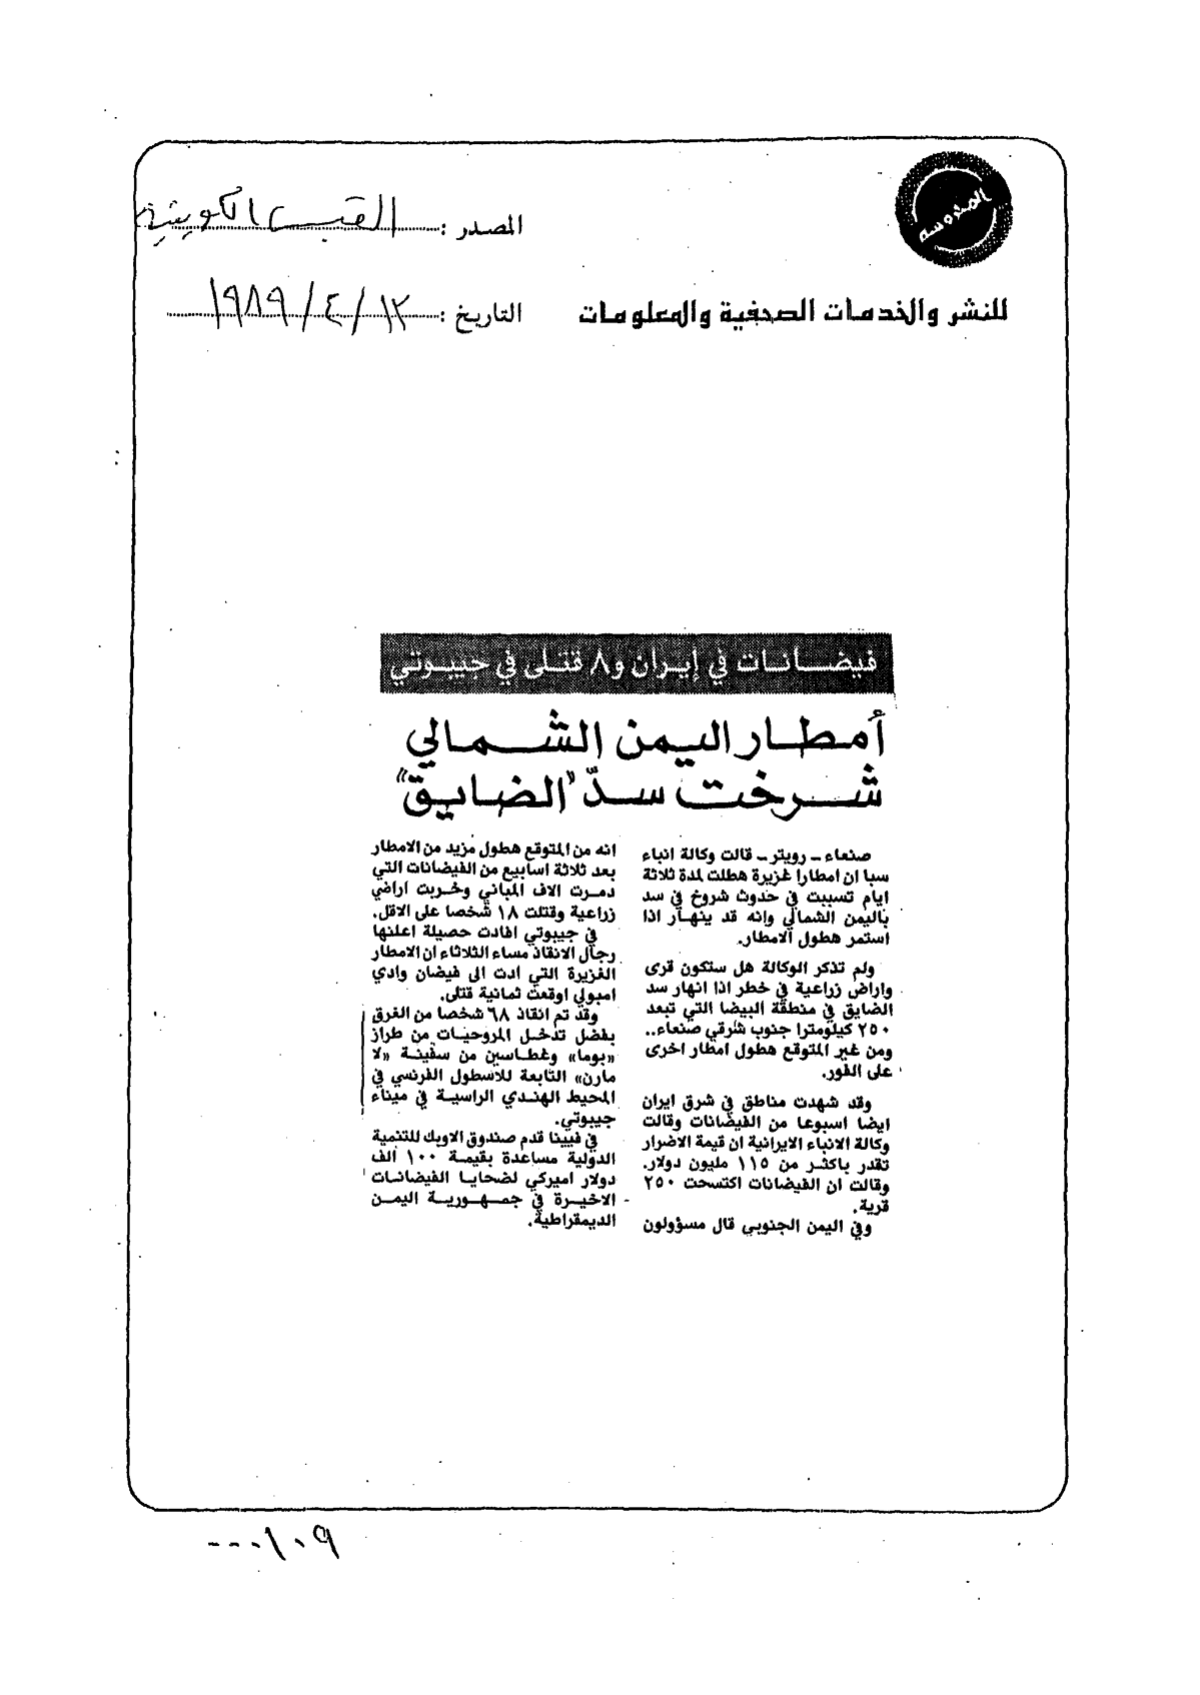 المحروسه
المصدر : القبس الكويتية
للنشر والخدمات الصحفية والمعلومات
التاريخ : ١٢/٤/١٩٨٩
فيضانات في إيران و٨ قتلى في جيبوتي
أمطار اليمن الشمالي
شرخت سدّ "الضايق"
صنعاء - رويتر - قالت وكالة انباء
سبا ان امطارا غزيرة هطلت لمدة ثلاثة
ايام تسببت في حدوث شروخ في سد
باليمن الشمالي وإنه قد ينهار اذا
استمر هطول الامطار.
ولم تذكر الوكالة هل ستكون قرى
واراض زراعية في خطر اذا انهار سد
الضايق في منطقة البيضا التي تبعد
٢٥٠ كيلومترا جنوب شرقي صنعاء..
ومن غير المتوقع هطول امطار اخرى
على الفور.
وقد شهدت مناطق في شرق ايران
ايضا اسبوعا من الفيضانات وقالت
وكالة الانباء الايرانية ان قيمة الاضرار
تقدر باكثر من ١١٥ مليون دولار.
وقالت ان الفيضانات اكتسحت ٢٥٠
قرية.
وفي اليمن الجنوبي قال مسؤولون
انه من المتوقع هطول مزيد من الامطار
بعد ثلاثة اسابيع من الفيضانات التي
دمرت الاف المباني وخربت اراضي
زراعية وقتلت ١٨ شخصا على الاقل.
في جيبوتي افادت حصيلة اعلنها
رجال الانقاذ مساء الثلاثاء ان الامطار
الغزيرة التي ادت الى فيضان وادي
امبولي اوقعت ثمانية قتلى.
وقد تم انقاذ ٦٨ شخصا من الغرق
بفضل تدخل المروحيات من طراز
«بوما» وغطاسين من سفينة «لا
مارن» التابعة للاسطول الفرنسي في
المحيط الهندي الراسية في ميناء
جيبوتي.
في فيينا قدم صندوق الاوبك للتنمية
الدولية مساعدة بقيمة ١٠٠ الف
دولار اميركي لضحايا الفيضانات
الاخيرة في جمهورية اليمن
الديمقراطية.